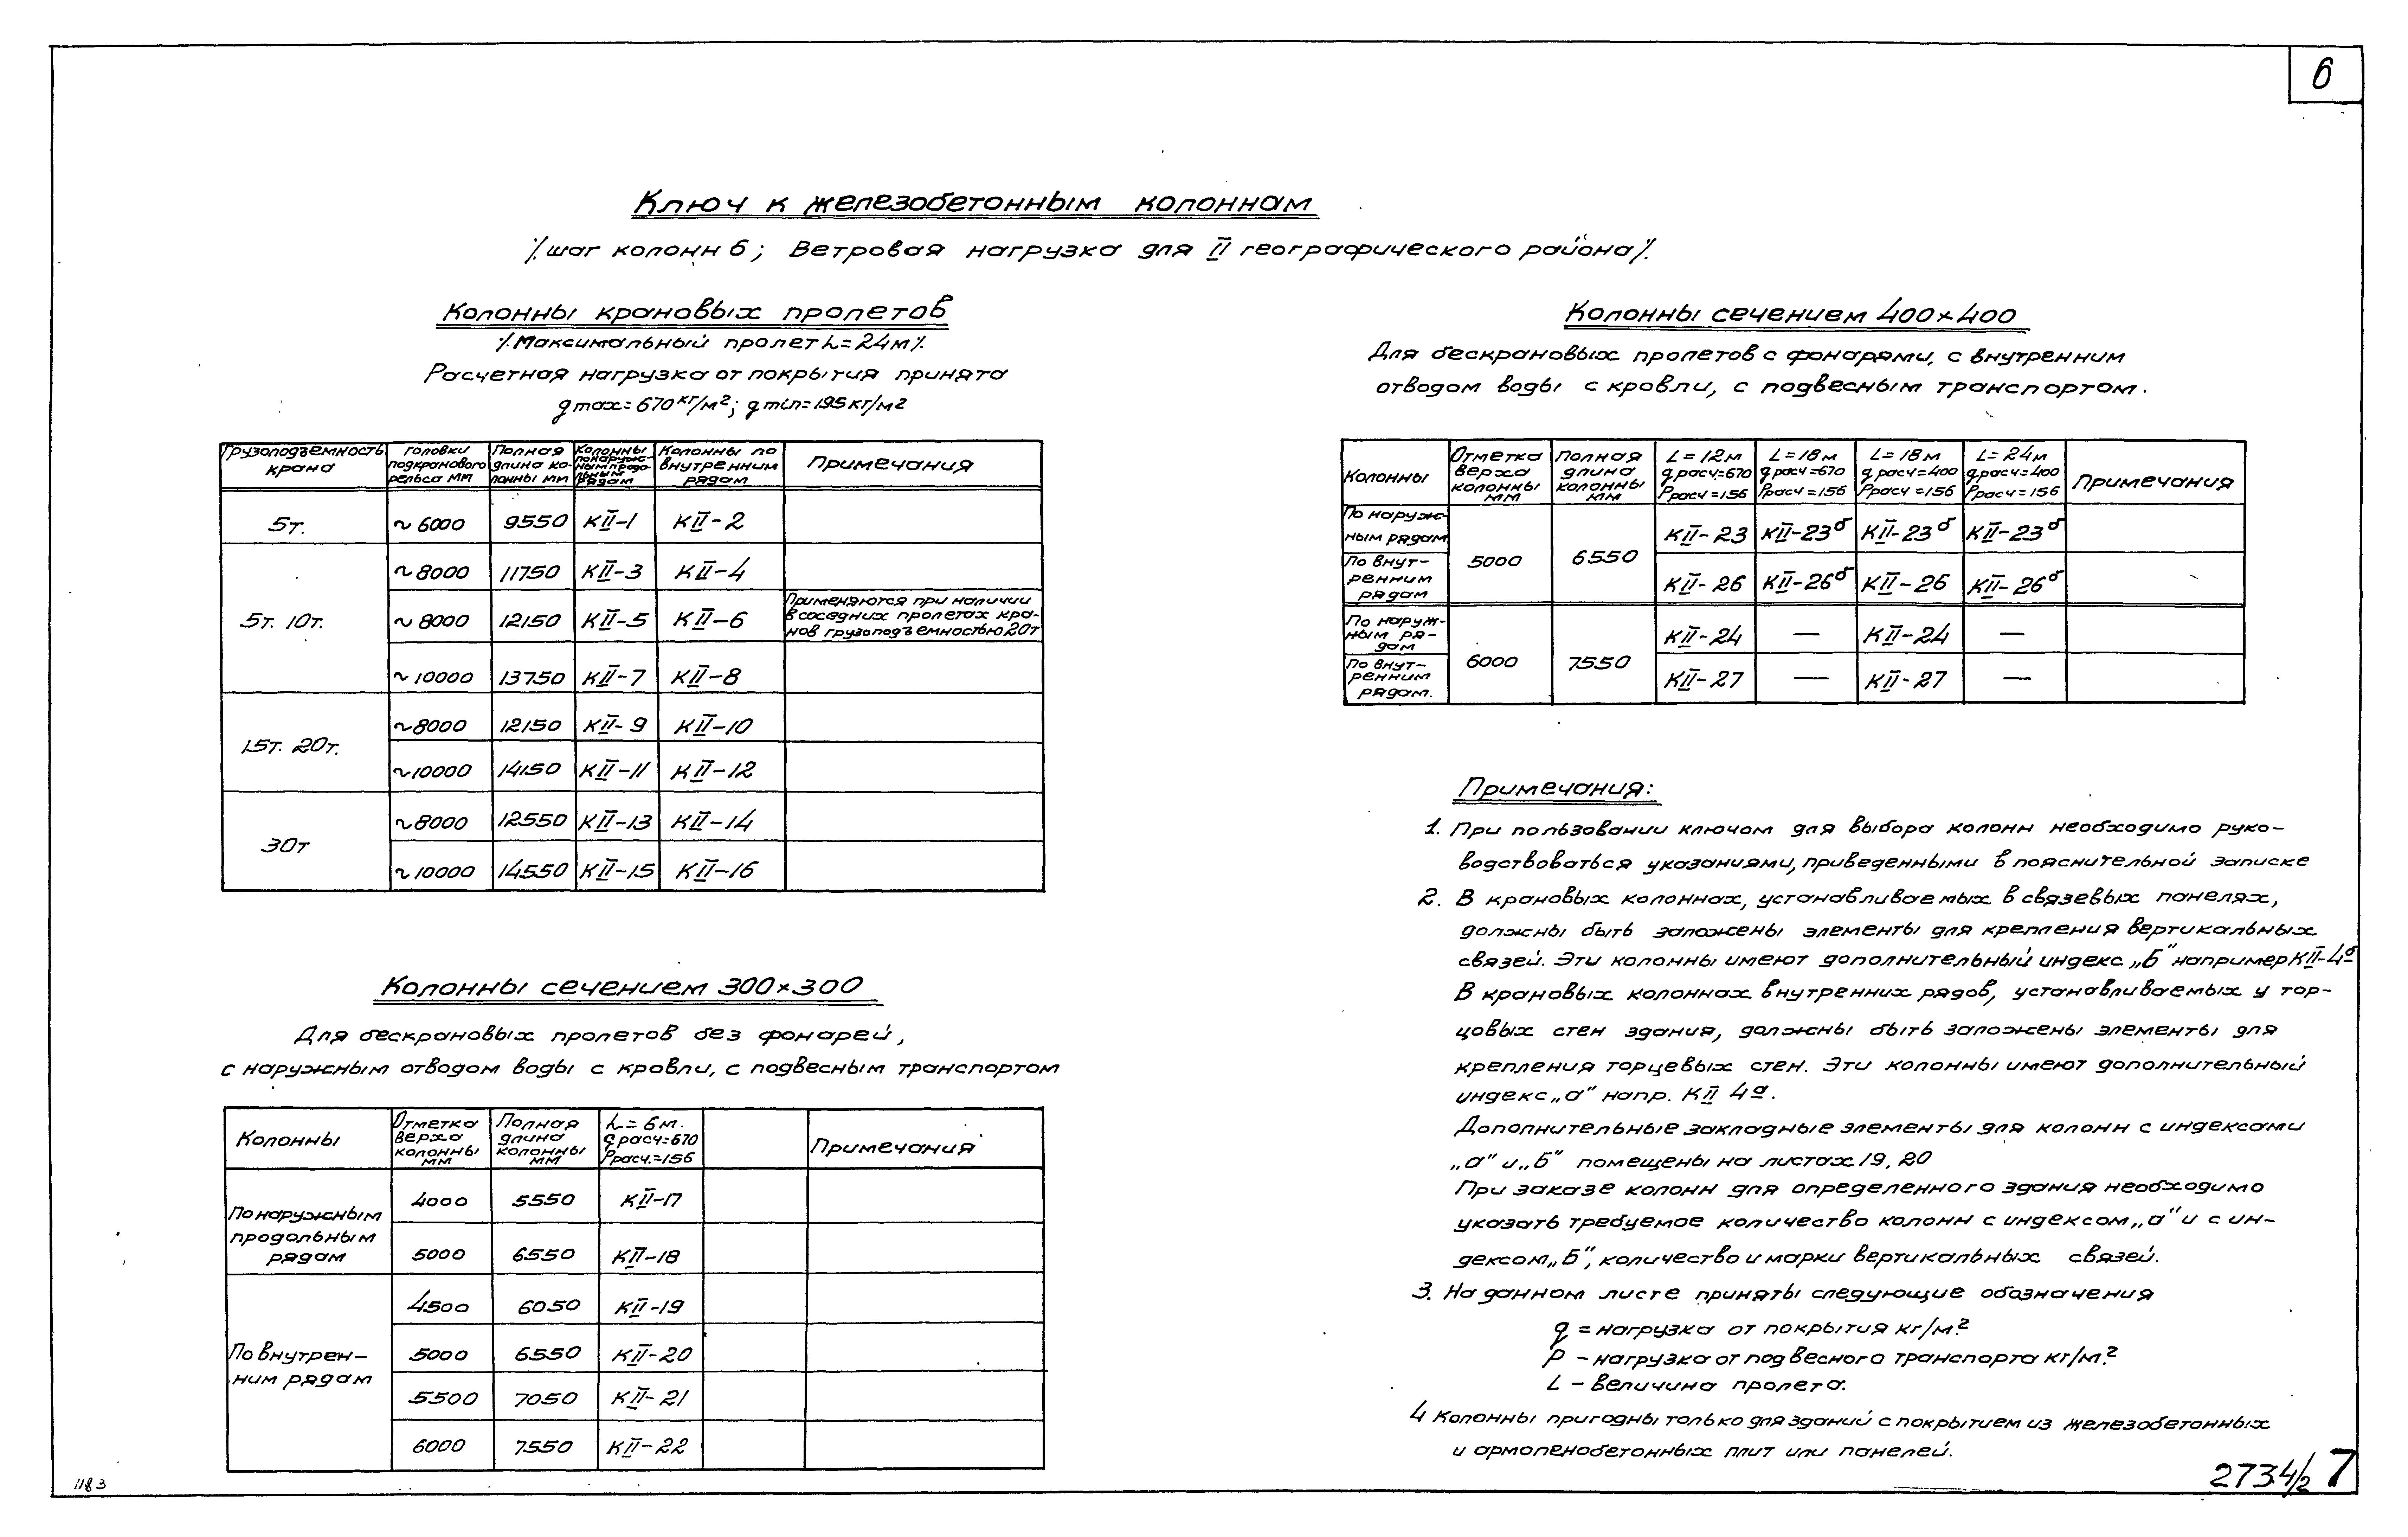 6
Ключ к железобетонным колоннам
/. шаг колонн 6; Ветровая нагрузка для II географического района /.
Колонны крановых пролетов
/. Максимальный пролет L=24м /.
Расчетная нагрузка от покрытия принята
q max=670 кг/м²; q min=195 кг/м²
Грузоподъемность крана | головки подкранового рельса мм | Полная длина колонны мм | Колонны по наружным продольным рядам | Колонны по внутренним рядам | Примечания
5т. | ~6000 | 9550 | КII-1 | КII-2
5т. 10т. | ~8000 | 11750 | КII-3 | КII-4
~8000 | 12150 | КII-5 | КII-6 | Применяются при наличии в соседних пролетах кранов грузоподъемностью 20т
~10000 | 13750 | КII-7 | КII-8
15т. 20т. | ~8000 | 12150 | КII-9 | КII-10
~10000 | 14150 | КII-11 | КII-12
30т | ~8000 | 12550 | КII-13 | КII-14
~10000 | 14550 | КII-15 | КII-16
Колонны сечением 300×300
Для бескрановых пролетов без фонарей,
с наружным отводом воды с кровли, с подвесным транспортом
Колонны | Отметка верха колонны мм | Полная длина колонны мм | L=6м. qрасч=670 Pрасч.=156 | Примечания
По наружным продольным рядам | 4000 | 5550 | КII-17
5000 | 6550 | КII-18
По внутренним рядам | 4500 | 6050 | КII-19
5000 | 6550 | КII-20
5500 | 7050 | КII-21
6000 | 7550 | КII-22
Колонны сечением 400×400
Для бескрановых пролетов с фонарями, с внутренним
отводом воды с кровли, с подвесным транспортом.
Колонны | Отметка верха колонны мм | Полная длина колонны мм | L=12м qрасч.=670 Pрасч=156 | L=18м qрасч=670 Pрасч=156 | L=18м qрасч=400 Pрасч=156 | L=24м qрасч=400 Pрасч=156 | Примечания
По наружным рядам | 5000 | 6550 | КII-23 | КII-23б | КII-23б | КII-23б
По внутренним рядам | КII-26 | КII-26б | КII-26 | КII-26б
По наружным рядам | 6000 | 7550 | КII-24 | — | КII-24 | —
По внутренним рядам. | КII-27 | — | КII-27 | —
Примечания:
1. При пользовании ключом для выбора колонн необходимо руко-
водствоваться указаниями, приведенными в пояснительной записке
2. В крановых колоннах, устанавливаемых в связевых панелях,
должны быть заложены элементы для крепления вертикальных
связей. Эти колонны имеют дополнительный индекс „Б" например КII-4б
В крановых колоннах внутренних рядов, устанавливаемых у тор-
цовых стен здания, должны быть заложены элементы для
крепления торцевых стен. Эти колонны имеют дополнительный
индекс „а" напр. КII 4а.
Дополнительные закладные элементы для колонн с индексами
„а" и „Б" помещены на листах 19, 20
При заказе колонн для определенного здания необходимо
указать требуемое количество колонн с индексом „а" и с ин-
дексом „Б", количество и марки вертикальных связей.
3. На данном листе приняты следующие обозначения
q = нагрузка от покрытия кг/м²
P – нагрузка от подвесного транспорта кг/м²
L – величина пролета.
4 Колонны пригодны только для зданий с покрытием из железобетонных
и армопенобетонных плит или панелей.
1183
2734/2 7